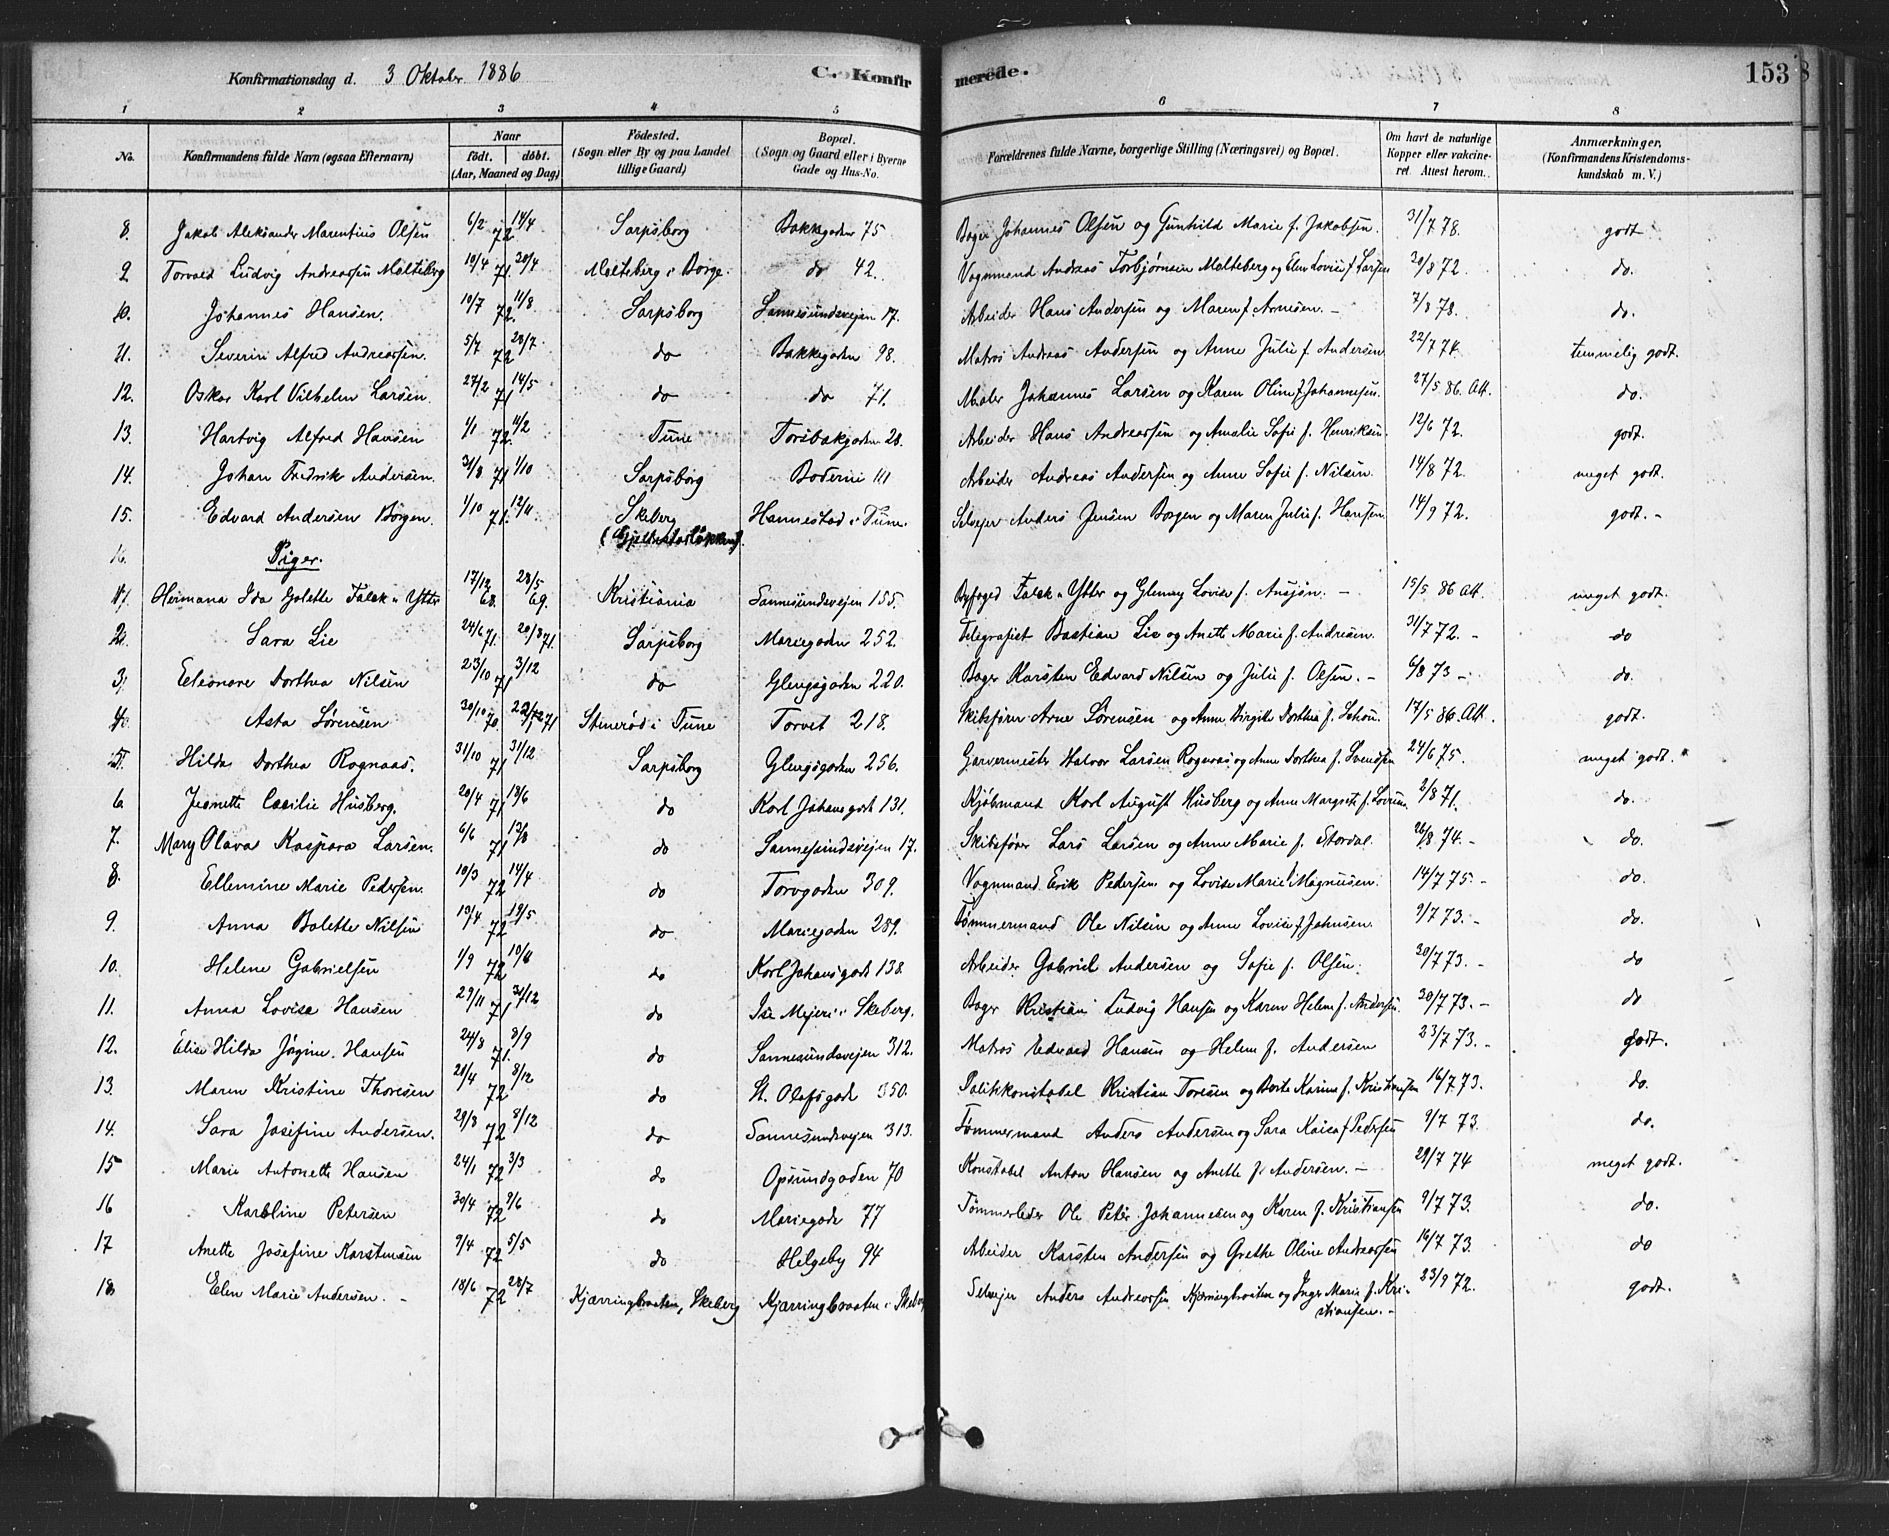 Konfirmationsdag d. 3 Oktober 1886 C. Konfirmerede. 153
1 2 3 4 5 6 7 8
No. Konfirmandens fulde Navn (ogsaa Efternavn) Naar født. døbt. (Aar, Maaned og Dag) Fødested. (Sogn eller By og paa Landet tillige Gaard) Bopæl. (Sogn og Gaard eller i Byerne Gade og Hus-No. Forældrenes fulde Navne, borgerlige Stilling (Næringsvei) og Bopæl. Om havt de naturlige Kopper eller vakcineret. Attest herom. Anmærkninger, (Konfirmandens Kristendomskundskab m. V.)
8. Jakob Aleksander Marentius Olsen 6/2 72 14/4 Sarpsborg Bakkegaden 75 Bager Johannes Olsen og Gunhild Marie f. Jakobsen. 31/7 78. godt
9 Torvald Ludvig Andreassen Molteberg 10/4 71. 20/4 Molteberg i Borge. do 42. Vognmand Andreas Torbjørnsen Molteberg og Elen Lovise f. Larsen 20/8 72. do.
10. Johannes Hansen. 10/7 72. 11/8 Sarpsborg Sannesundsveien 17. Arbeider Hans Andersen og Maren f. Arnesen. 7/8 78. do.
11. Severin Alfred Andreassen. 5/7 72 28/7 do Bakkegaden 98. Matros Andreas Andersen og Anne Julie f. Andersen 22/7 74. temmelig godt.
12. Oskar Karl Vilhelm Larsen. 27/2 71 14/5 do do 71. Maler Johannes Larsen og Karen Oline f. Johannesen. 27/5 86 Att. do.
13. Hartvig Alfred Hansen 1/1 72. 11/2 Tune Torsbakgaden 28. Arbeider Hans Andreassen og Amalie Sofie f. Henriksen. 12/6 72. godt.
14. Johan Fredrik Andersen. 31/8 71 1/10 Sarpsborg Boderne 111 Arbeider Andreas Andersen og Anne Sofie f. Nilsen. 14/8 72. meget godt.
15. Edvard Andersen Borgen. 1/10 71. 12/11 Skeberg Hannestad i Tune. Selveier Anders Jensen Borgen og Maren Julie f. Hansen 14/9 72. godt.
16. Piger.
1. Hermana Ida Golette Falck-Ytter 17/12 68. 28/5 69. Kristiania Sannesundsveien 155. Byfoged Falck-Ytter og Glenny Lovise f. 15/5 86 Att. meget godt.
2. Sara Lie 24/6 71. 20/8 71. Sarpsborg Mariegaden 252. Telegrafist Bastian Lie og Anette Marie f. Andresen. 31/7 72. do
3. Eleonore Dorthea Nilsen 23/10 71 3/12 do Glengsgaden 220. Bager Karsten Edvard Nilsen og Julie f. Olsen. 6/8 73 do.
4. Asta Sørensen 30/10 70. 71 Stenerød i Tune Torvet 218. Skibsfører Arne Sørensen og Anne Birgitte Dorthea f. 17/5 86. Att. godt.
5. Hilda Dorthea Rognaas. 31/10 71 31/12 Sarpsborg Glengsgaden 256. Garvermester Halvor Larsen Rognaas og Anne Dorthea f. Svendsen 24/6 75. meget godt.
6 Jeanette Cæcilie Husberg. 20/4 71 13/6 do Karl Johansgade 131. Kjøbmand Karl August Husberg og Anne Margrete f. 2/8 71. do.
7. Mary Olava Kaspara Larsen. 6/6 71 13/8 do Sannesundsveien 17. Skibsfører Lars Larsen og Anne Marie f. Stordal. 26/8 74. do.
8. Ellemine Marie Pedersen. 10/3 72 14/4 do Torvgaden 309. Vognmand Erik Pedersen og Lovise Marie f. Magnusen. 14/7 75 do.
9. Anna Bolette Nilsen 19/4 72 19/5 do Mariegaden 289. Tømmermand Ole Nilsen og Anne Lovise f. Johnsen. 9/7 73. do.
10. Helene Gabrielsen 1/9 72 do Karl Johansgade 138. Arbeider Gabriel Andersen og Sofie f. Olsen. 30/7 73. do
11. Anna Lovise Hansen 29/11 71 31/12 do Ise Mejeri i Skeberg. Bager Kristian Ludvig Hansen og Karen Helene f. Andersen. 30/7 73. do
12. Elise Hilda Jørgine Hansen 24/8 71. 3/9 do Sannesundsveien 312. Matros Edvard Hansen og Helene f. Andersen 23/7 73. godt.
13. Maren Kristine Thoresen 21/4 72 8/12 do St. Olafsgade 350. Politikonstabel Kristian Toresen og Dorte Karine f. Kristiansen 16/7 73. do.
14. Sara Josefine Andersen. 29/8 72 8/12 do Sannesundsveien 313. Tømmermand Anders Andersen og Sara Kaisa f. Pedersen 9/7 73. do.
15 Marie Antonette Hansen 24/1 72 3/3 do Opsundgaden 70 Konstabel Anton Hansen og Anette f. Andersen. 29/7 74 meget godt.
16 Karoline Petersen 30/4 72 9/6 do Mariegade 77 Tømmerleder Ole Peter Johannesen og Karen f. Kristiansen 9/7 73. do.
17 Anette Josefine Karstensen 9/4 72 5/5 do Helgeby 94 Arbeider Karsten Andersen og Grethe Oline Andreassen 16/7 73. do
18 Elen Marie Andersen. 18/6 72 28/7 Kjærringbraaten, Skeberg Kjærringbraaten i Skeberg Selveier Anders Andreassen Kjærringbraaten og Inger Marie f. Kristiansen. 23/9 72. godt.